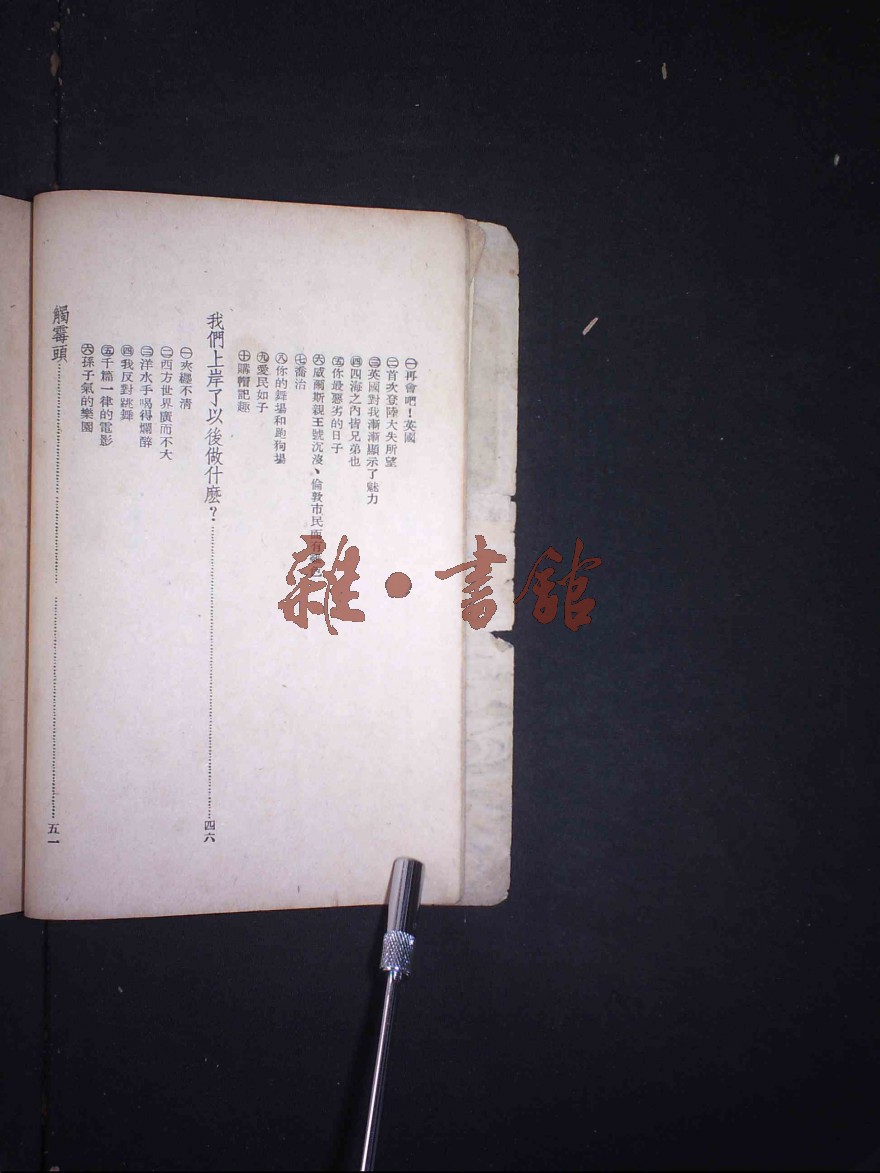 ㊀再會吧！英國
㊁首次登陸大失所望
㊂英國對我漸漸顯示了魅力
㊃四海之內皆兄弟也
㊄你最惡劣的日子
㊅威爾斯親王號沉沒、倫敦市民面有
㊆喬治
㊇你的舞場和跑狗場
㊈愛民如子
㊉購帽記趣
我們上岸了以後做什麼？……四六
㊀夾纏不清
㊁西方世界廣而不大
㊂洋水手喝得爛醉
㊃我反對跳舞
㊄千篇一律的電影
㊅孫子氣的樂園
觸霉頭……五一
雜·書館